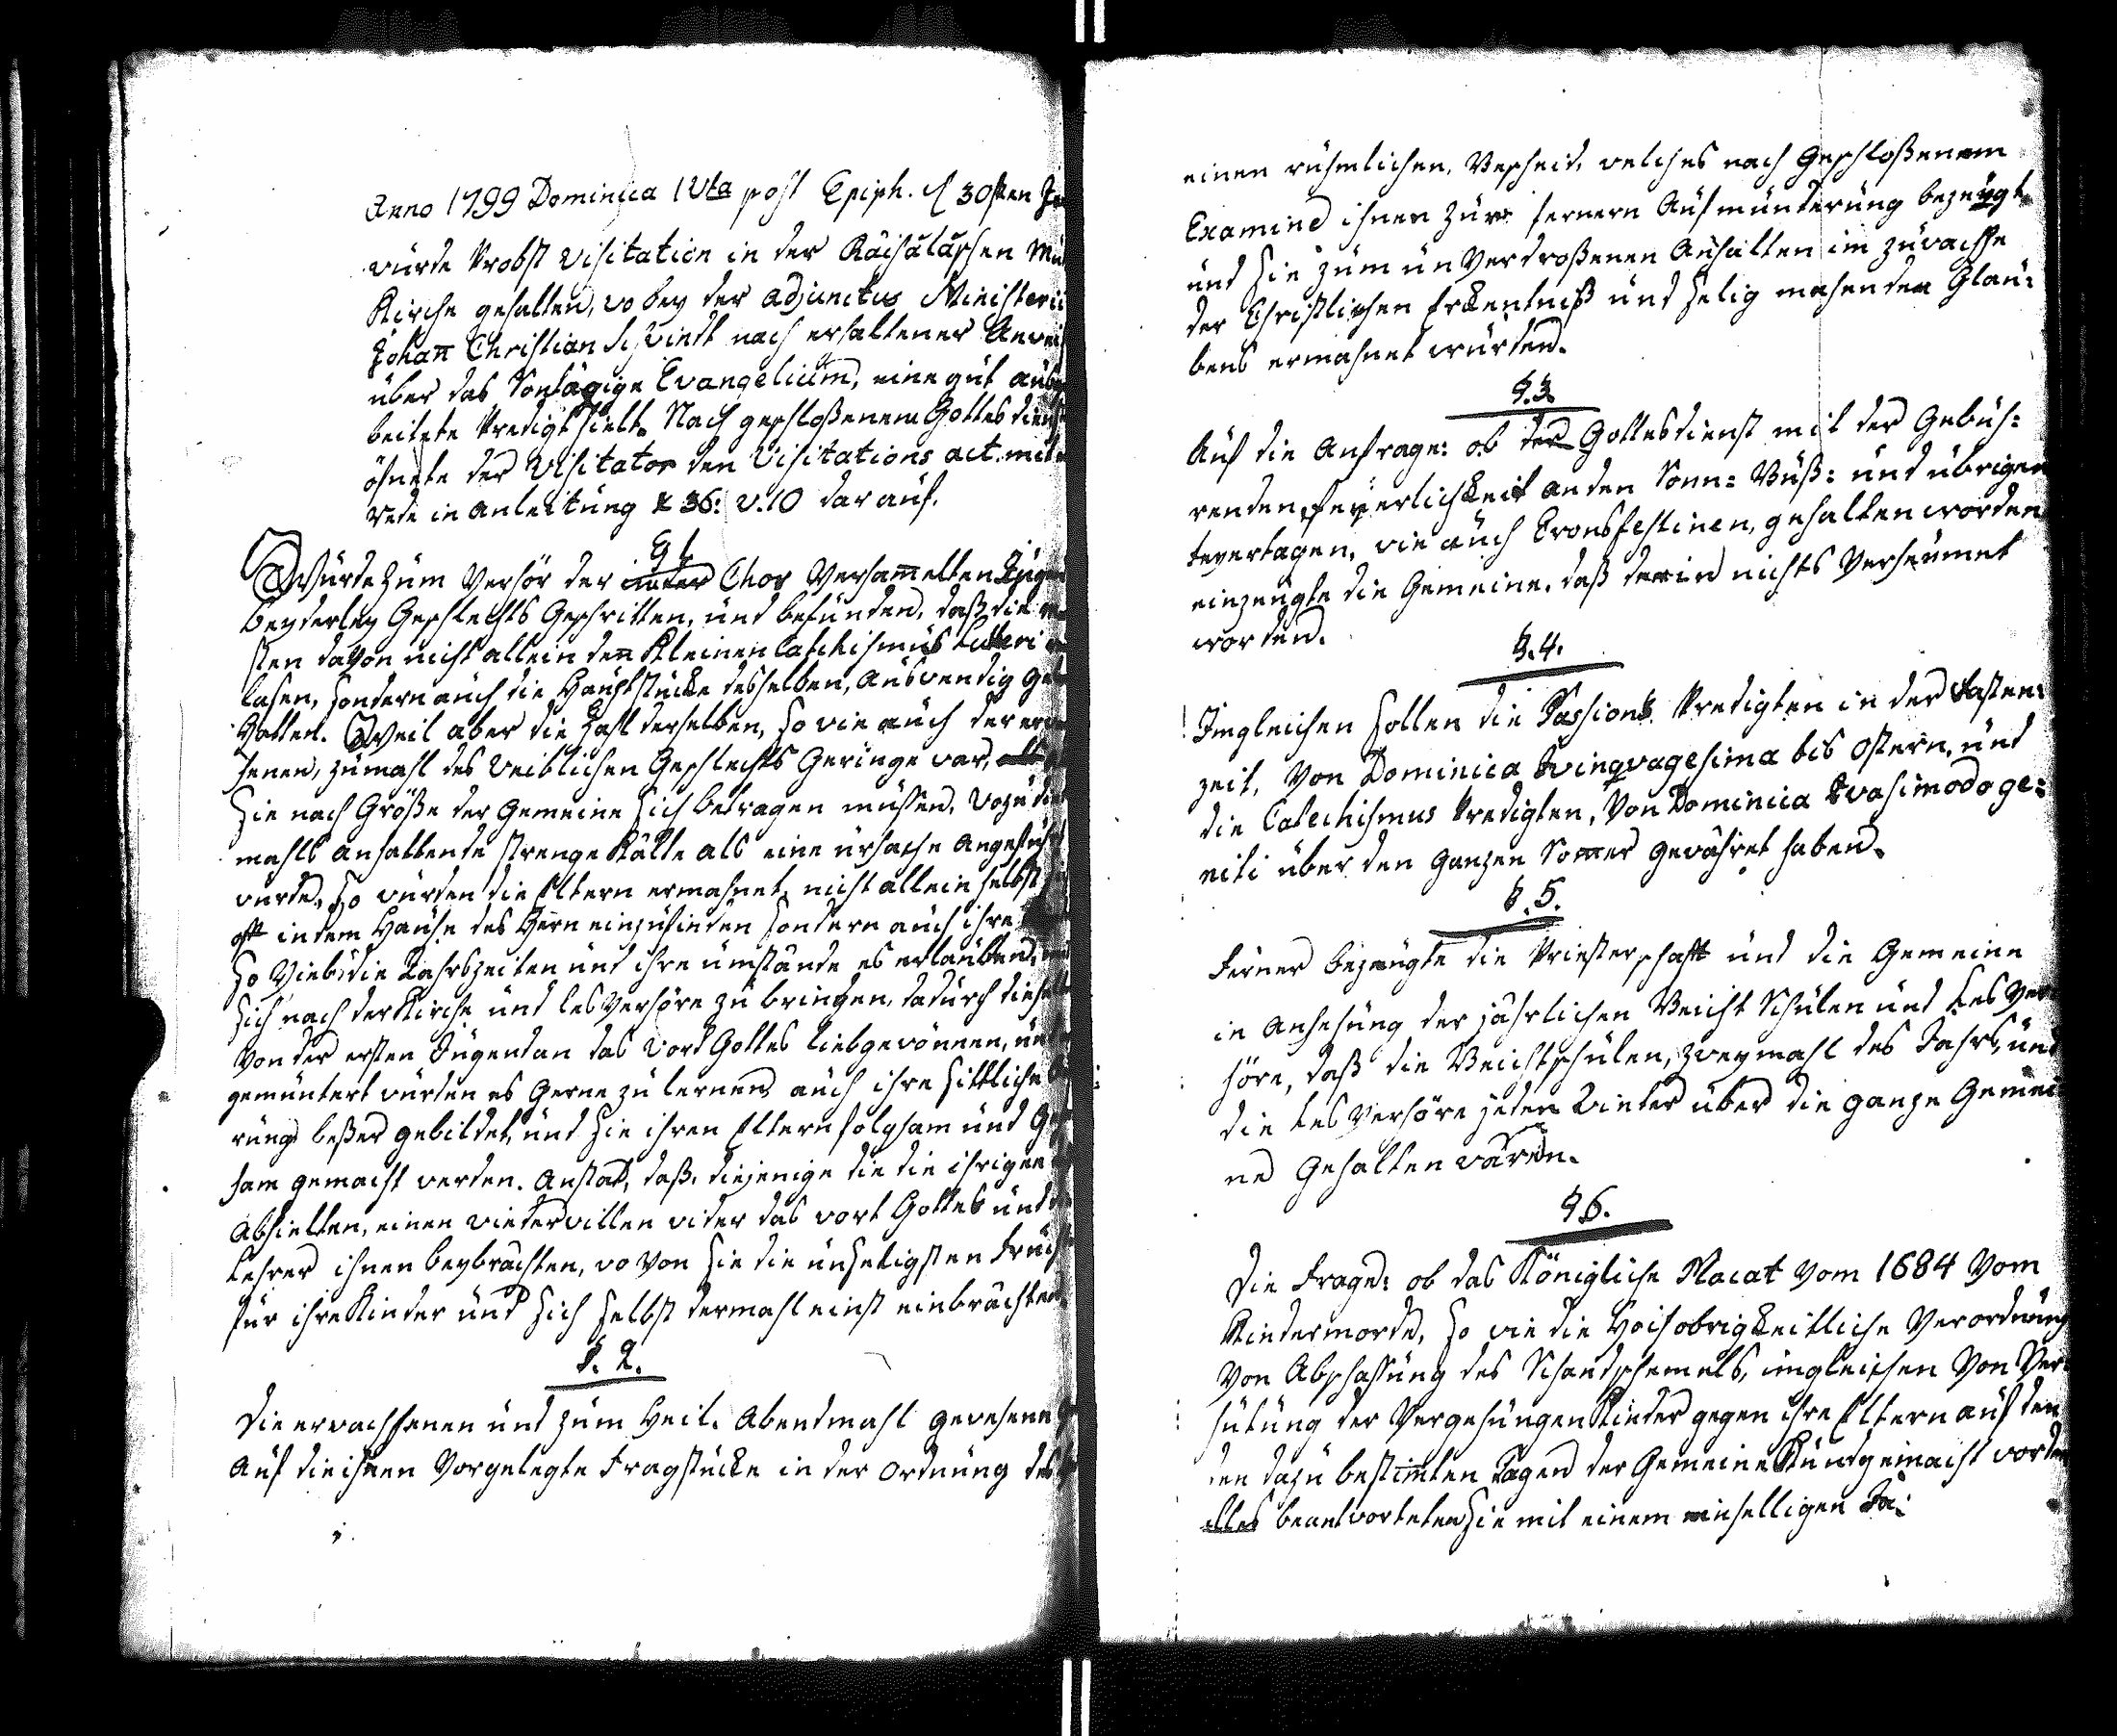 Anno 1799 Dominica IVta post Epiph. d 30sten
würde Probst Visitation in der Räisäläschen
Kirche gehalten, vo bey der adjunctus Ministerii
Johañ Christian Schvindt nach erhaltener
über das Sontägige Evangelium, eine güt
beitete Predigt hielt. Nach geschloßenem Gottesdien
öfnete der Visitator den Visitations act. mit
rede in anleitüng 36: v. 10 darauf.
§ 1
Würde züm Verhör der Chor Versam̃elten
beyderley Geschlechts Geschritten, und befünden, daß die
sten davon nicht allein den Kleinen Catechismüs Lutteri
lasen, sondern auch die Haüptstücke desselben, Aüsvendig
Hatten. Weil aber die Zahl derselben, so vie auch der
senen, zümahl des veiblichen Geschlechts Geringe var,
Sie nach Größe der Gemeine sich betragen müssen, vozü
mahls anhaltende strenge Kälte als eine ürsache Angeführt
vurde, so vürden die Eltern ermahnet, nicht allein selbst
oft in dem Haüse des Herrn einzüfinden sondern auch ihre
so Viel die Jahrszeiten ünd ihre ümstände es erlaübten,
sich nach der Kirche ünd lesVerhöre zü bringen, dadürch
Von der ersten Jügend an das Vort Gottes liebgevönnen,
gemüntert vürden es Gerne zü lernen, auch ihre sittliche
rüng beßer gebildet, ünd sie ihren Eltern folgsam und
sam gemacht verden. Anstat, daß, diejenige die die ihrigen
Abhielten, einen viedervillen vider das vort Gottes ünd
Lehrer ihnen beybrachten, vo Von sie die ünseligsten
für ihre Kinder ünd sich selbst dermahl einst einbrächten.
§. 2.
Die ervachsenen ünd züm Heil. Abendmahl gevesene
Aüf die ihnen Vorgelegte Fragstücke in der ordnüng des
einen rühmlichen Bescheid, velches nach Geschloßenem
Examine ihnen zür fernern Aüfmünterüng bezeügt
ünd sie züm ünVerdroßenen Anhalten im züvachse
der Christlichen Erkentniß ünd selig machenden Glaü:
bens ermahnet würden.
§. 3
Auf die Anfrage: ob der Gottesdienst mit der Gebüh:
renden feyerlichkeit an den Sonn= Büß= und übrigen
feyertagen, vie aüch Cronsfestinen, gehalten worden
einzeügte die Gemeine, daß darin nichts Versäümet
worden.
§. 4.
Imgleichen sollen die Passions Predigten in der Fasten:
zeit, Von Dominica Qvinqvagesima bis Ostern, ünd
die Catechismus Predigten, Von Dominica Qvasimodoge:
niti über den Ganzen Som̃er Gevähret haben.
§. 5.
Ferner bezeügte die Priesterschaft und die Gemeine
in Ansehüng der jährlichen Beicht Schülen und LesVer
höre, daß die Beichtschülen, zveymahl des Jahrs, ünd
die lesVerhöre jeden Vinter über die ganze Gemei
ne Gehalten vären.
§ 6.
Die Frage: ob das Königliche Placat Vom 1684 Vom
Kindermorde, so vie die Hochobrigkeitliche Verordnüng
Von Abschaffüng des Schandschemels, imgleichen Von Ver
hütüng der Vergehüngen Kinder gegen ihre Eltern aüf den
den dazü bestim̃ten Tagen der Gemeine Kündgemacht
alles beantvorteten sie mit einem einhelligen Ja: